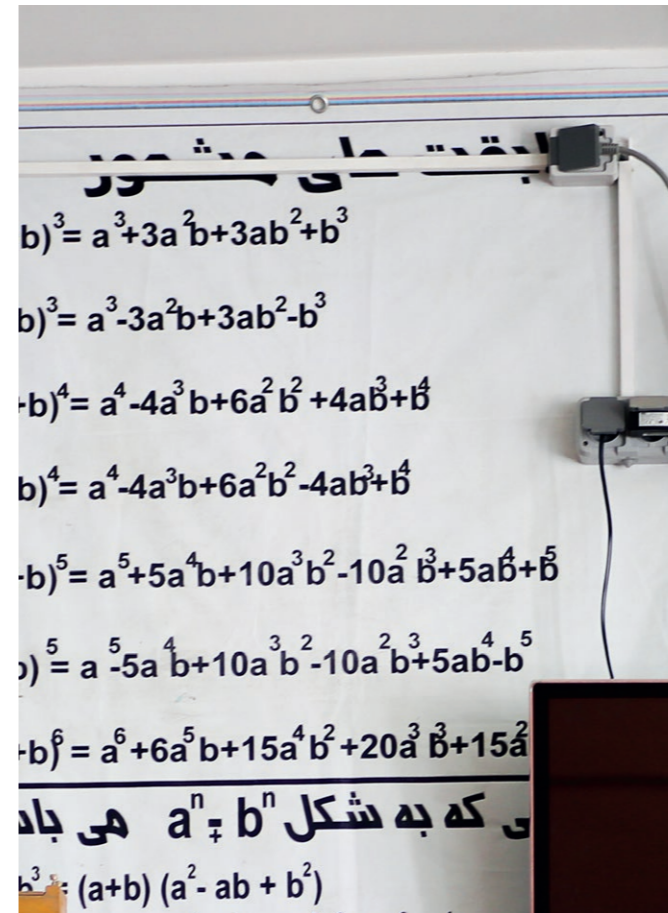 b)³= a³+3a²b+3ab²+b³
b)³= a³-3a²b+3ab²-b³
-b)⁴= a⁴-4a³b+6a²b²+4ab³+b⁴
b)⁴= a⁴-4a³b+6a²b²-4ab³+b⁴
-b)⁵= a⁵+5a⁴b+10a³b²-10a²b³+5ab⁴+b⁵
)⁵= a⁵-5a⁴b+10a³b²-10a²b³+5ab⁴-b⁵
-b)⁶= a⁶+6a⁵b+15a⁴b²+20a³b³+15a²
که به شکل aⁿ∓bⁿ می
b³ = (a+b) (a²- ab + b²)